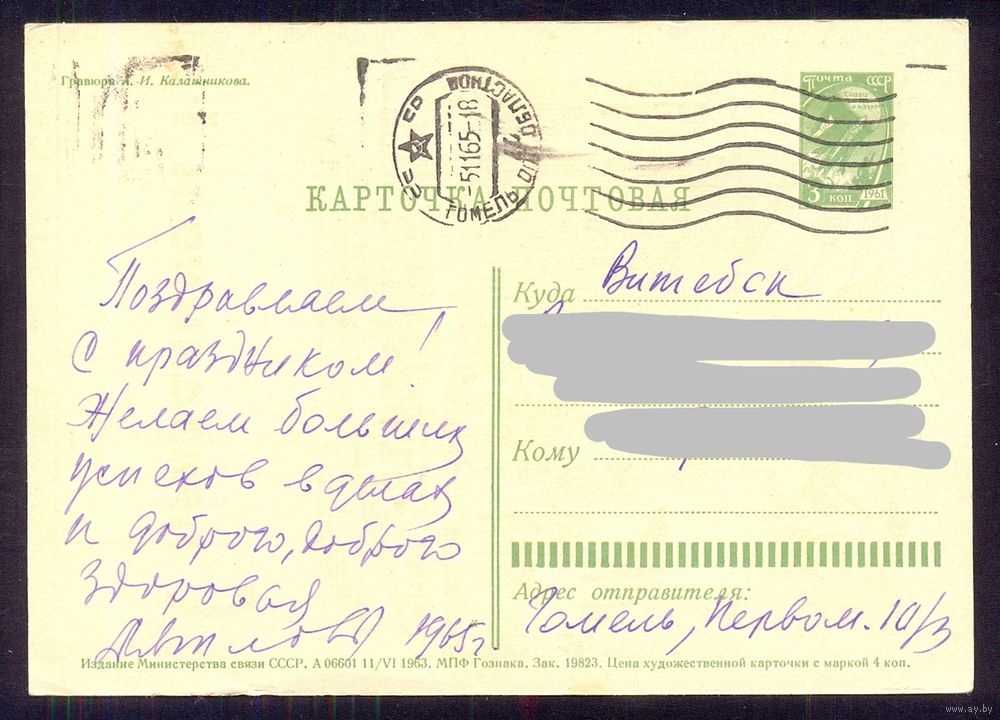 Гравюра А. И. Калашникова.
Почта СССР
Слава
науке
3 коп 1961
СССР
ГОМЕЛЬ ОБЛАСТНОЙ
-51165-18
КАРТОЧКА ПОЧТОВАЯ
Поздравляем
с праздником!
Желаем больших
успехов в делах
и доброго, доброго
здоровья
1965г
Куда Витебск
Кому
Адрес отправителя:
Гомель, Первом. 10/3
Издание Министерства связи СССР. А 06601 11/VI 1963. МПФ Гознака. Зак. 19823. Цена художественной карточки с маркой 4 коп.
www.ay.by